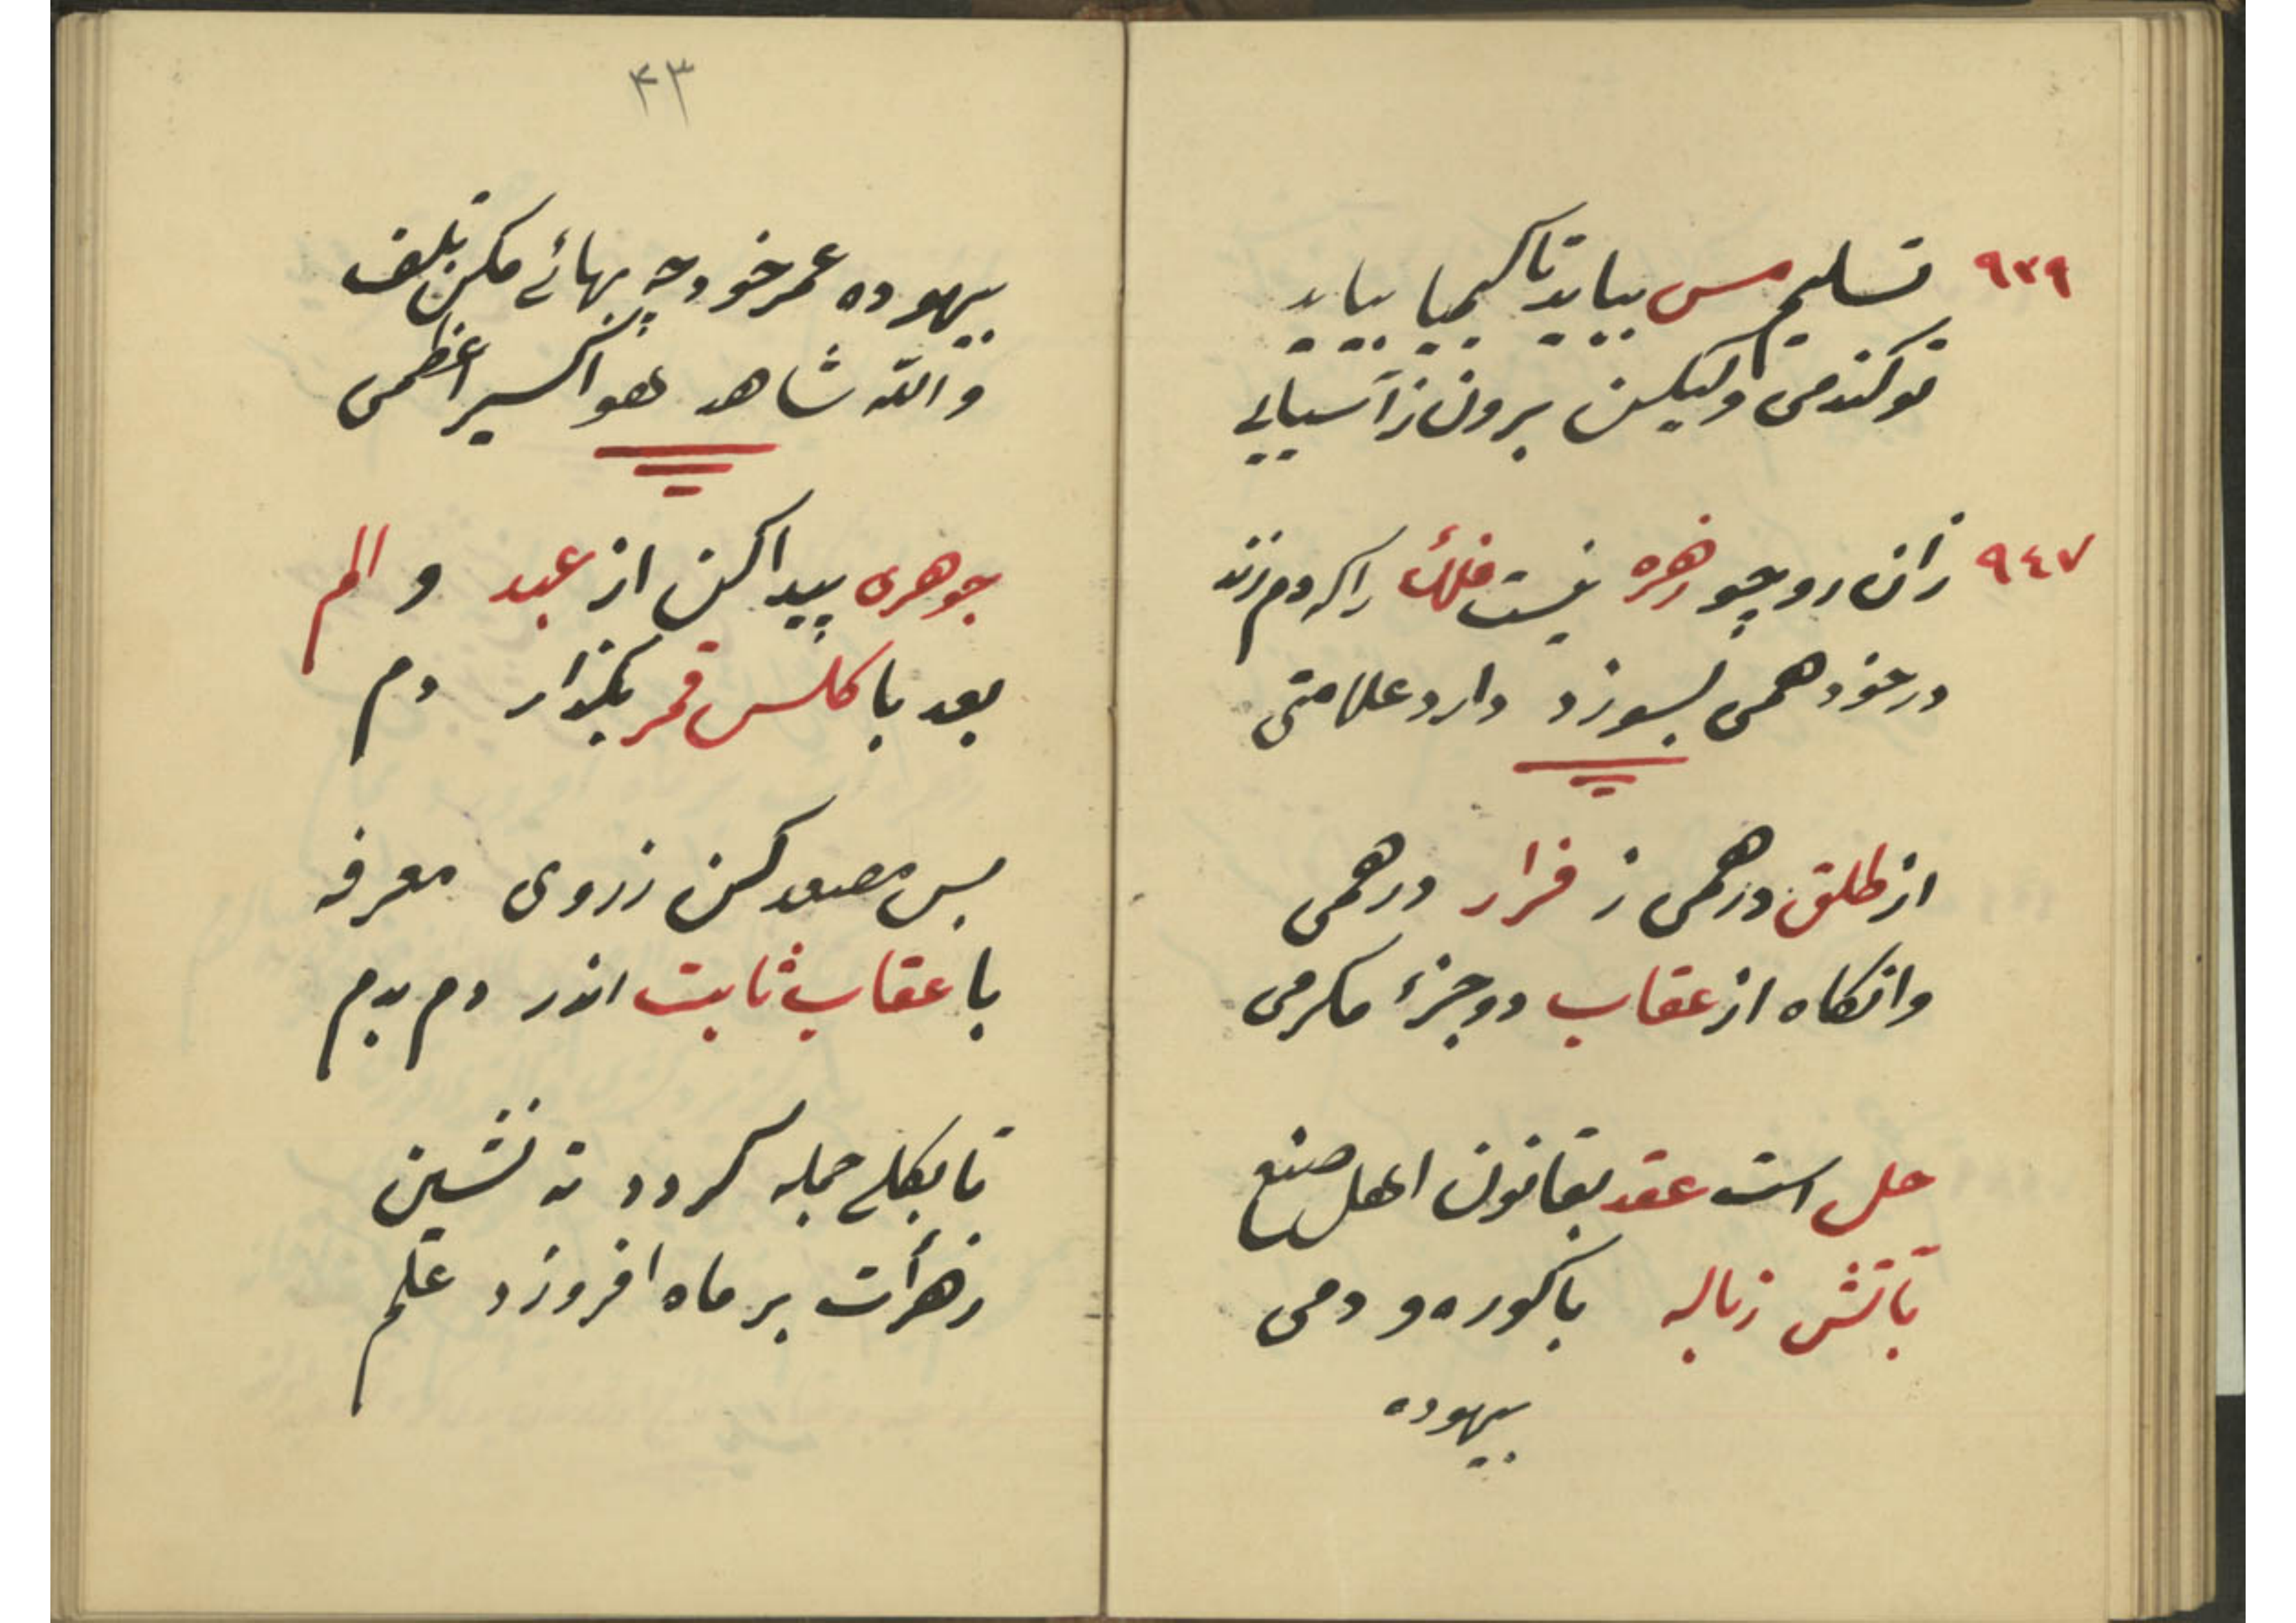 ۹۳۹ تسلیم مس بباید تا کیمیا بیاید
تو کندمی ولیکن برون ز آسیابی
۹٤۷ زان رو چو زهره نیست فلک را که دم زند
در خود همی بسوزد دارد علامتی
از طلق درهمی ز فرار درهمی
وانکاه از عقاب دو جزء مکرمی
حل است عقد بقانون اهل صنع
بآتش زباله با کوره و دمی
بیهوده
۴۳
بیهوده عمر خود چه بهائی مکن تلف
والله شاهد هو اکسیر اعظمی
جوهری پیدا کن از عبد و الم
بعد با کلس قمر بکذار دم
بس مصعد کن ز روی معرفه
با عقاب ثابت اندر دم بدم
تا بکلی جمله کردد ته نشین
زهرأت بر ماه افروزد علم